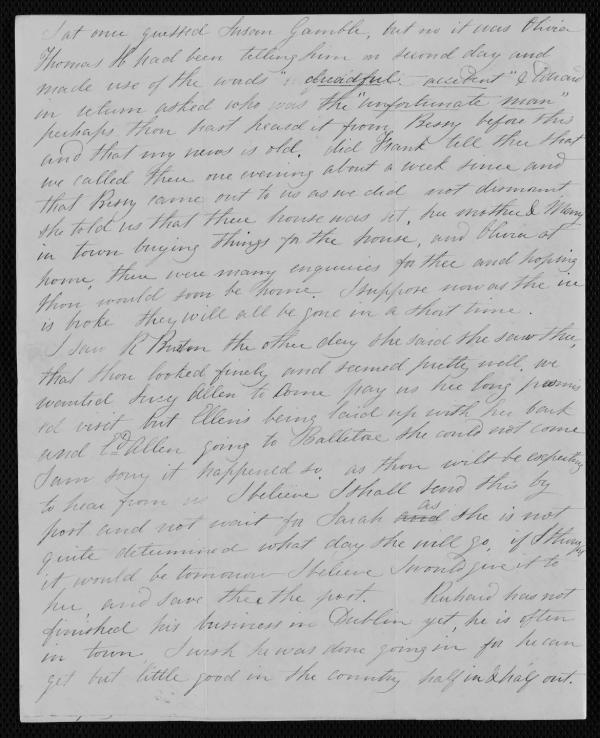 I at one guessed Susan Gamble, but no it was Olivia
Thomas H had been telling him on second day and
made use of the words "dreadful accident" & Edward
in return asked who was the "unfortunate man"
perhaps thou hast heard it from Bessy before this
and that my news is old. did Frank tell thee that
we called there one evening about a week since and
that Bessy came out to us as we did not dismount
she told us that their house was set, her mother & Mary
in town buying things for the house, and Olivia at
home, there were many enquiries for thee and hoping
thou would soon be home. I suppose now as the ice
is broke they will all be gone in a short time.
I saw R Barton the other day she said she saw thee,
that thou looked finely and seemed pretty well. we
wanted Suzy Allen to come pay us her long promis
'd visit but Ellen's being laid up with her back
and Ed Allen going to Ballitore she could not come
I am sorry it happened so. as thou wilt be expecting
to hear from us I believe I shall send this by
post and not wait for Sarah and as she is not
quite determined what day she will go, if I thought
it would be tomorrow I believe I would give it to
her, and save thee the post. Richard has not
finished his business in Dublin yet, he is often
in town. I wish he was done going in for he can
get but little good in the country half in & half out.